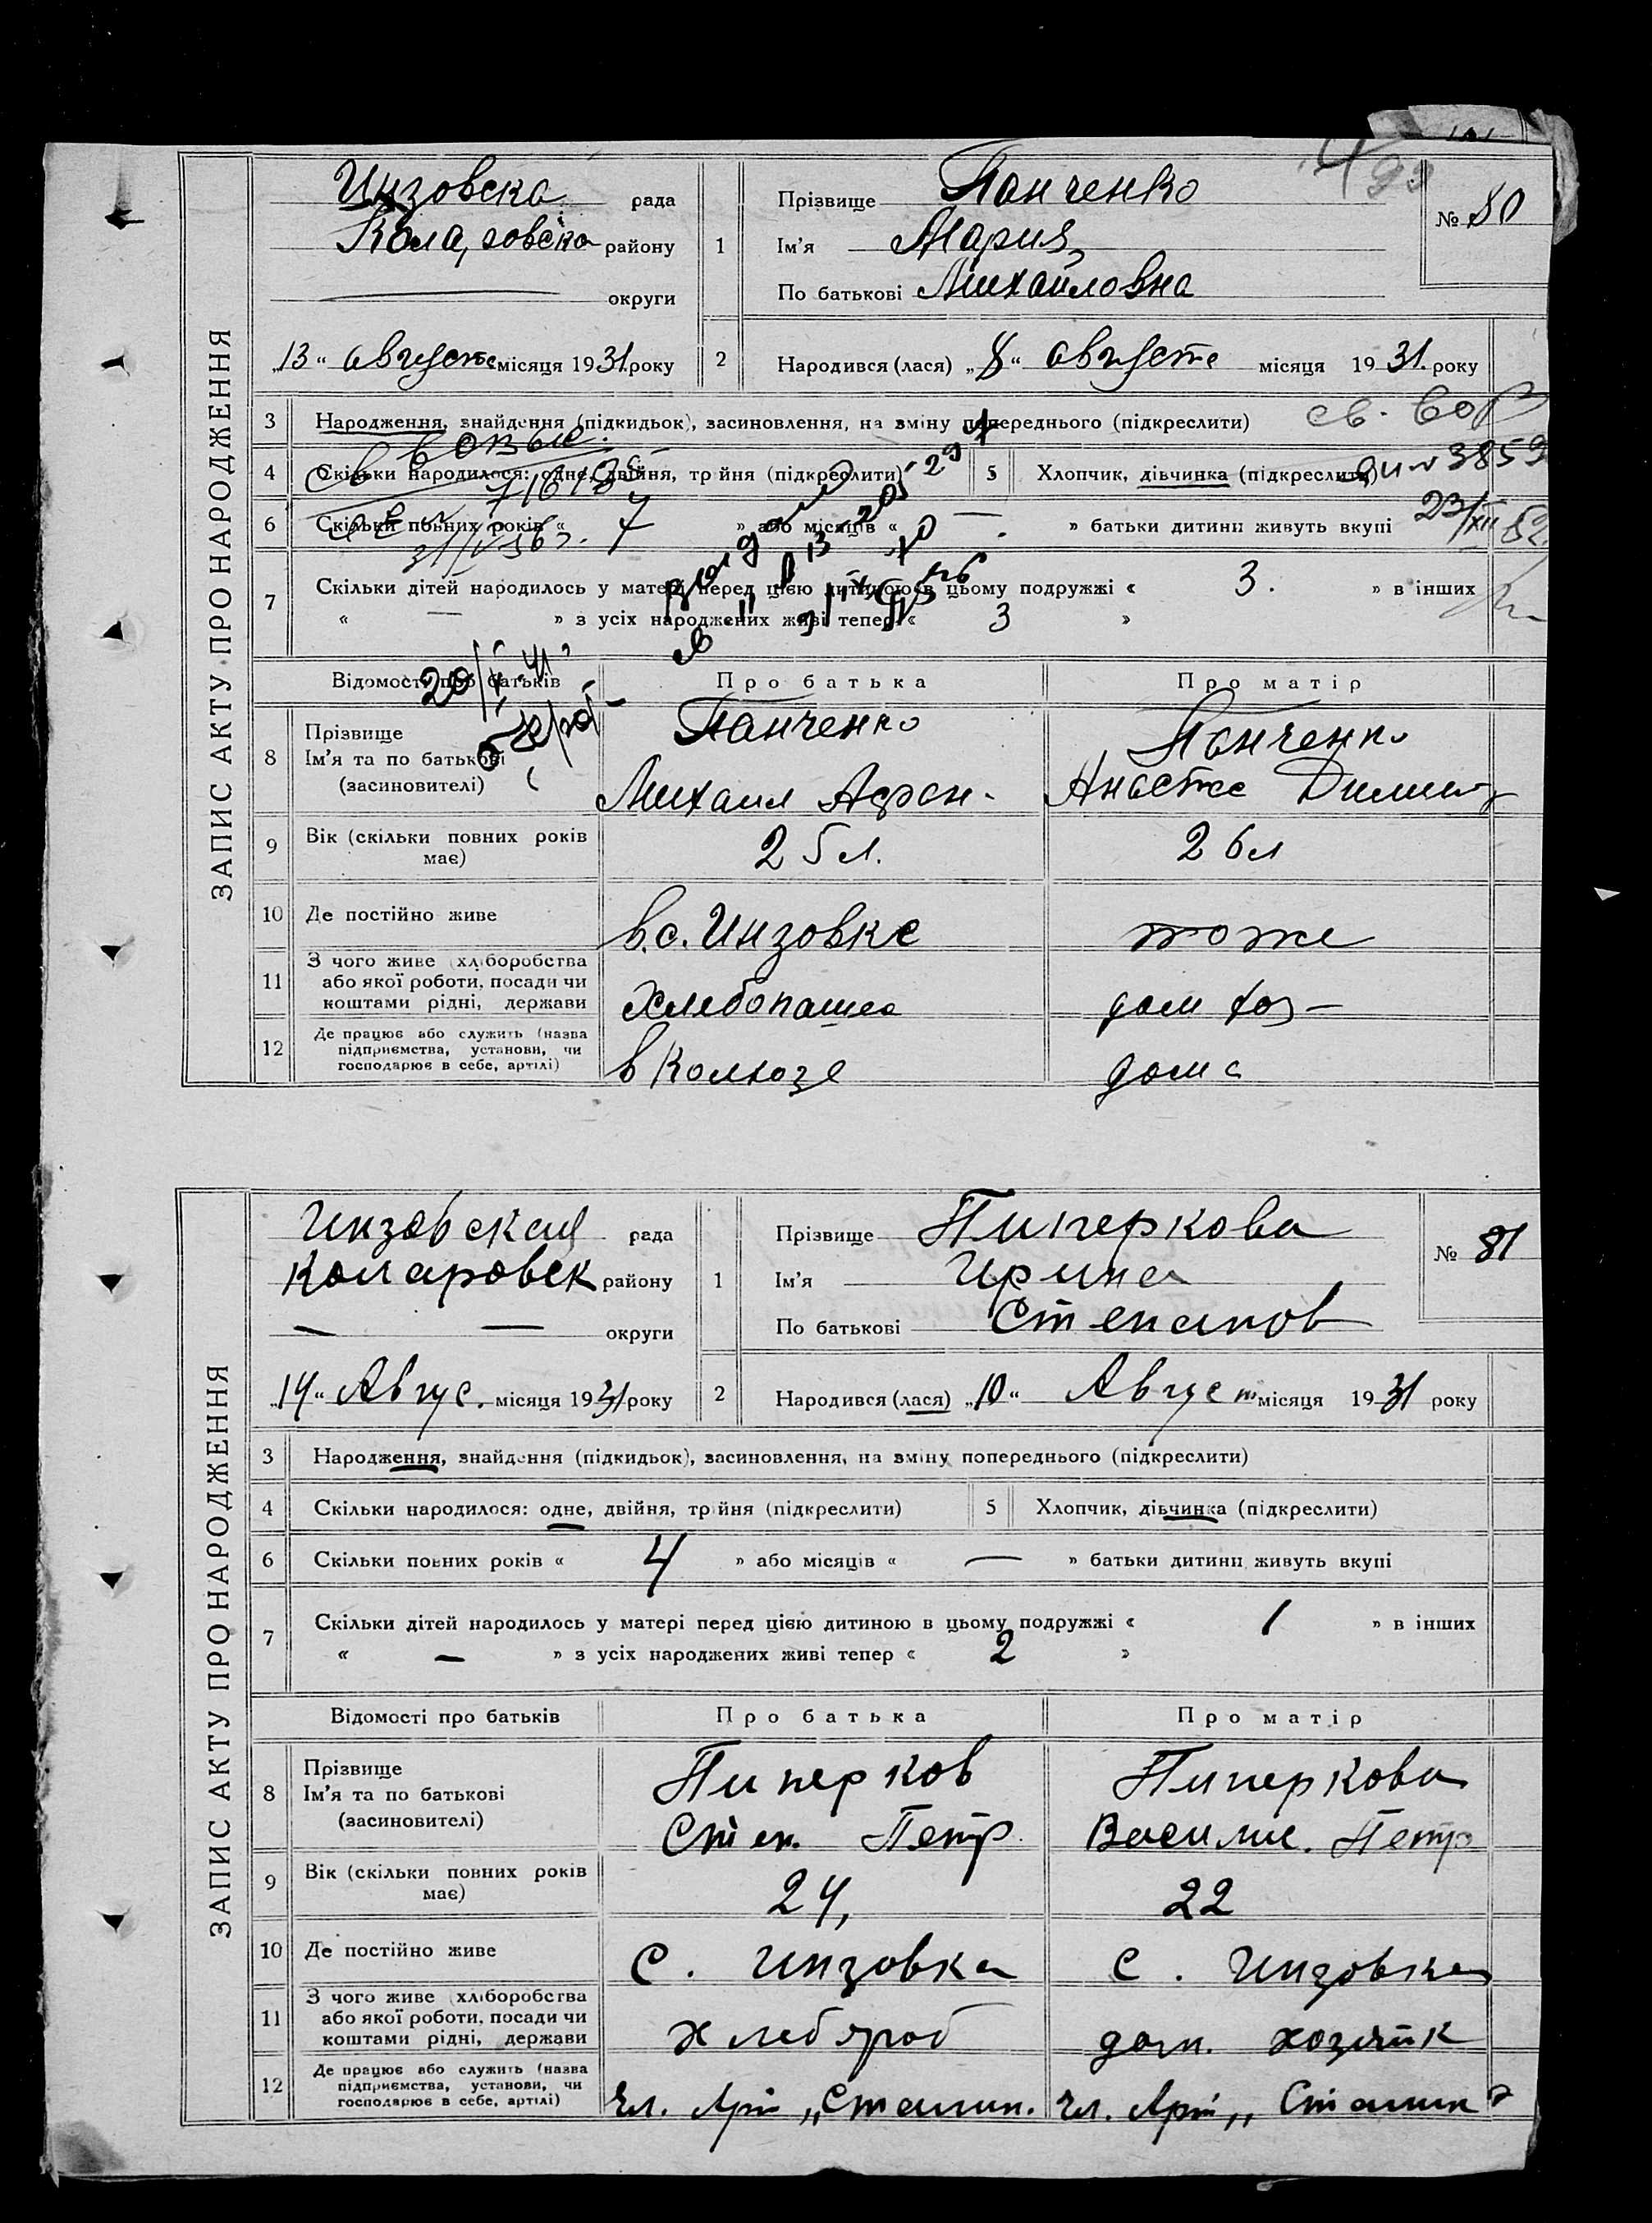 ЗАПИС АКТУ ПРО НАРОДЖЕННЯ
Инзовска рада
Коларовско району
округи
„13“ августа місяця 1931. року
1 Прізвище Панченко
Ім'я Мария
По батькові Михайловна
№ 80
2 Народився (лася) „8“ августа місяця 1931. року
3 Народження, знайдення (підкидьок), засиновлення, на зміну попереднього (підкреслити)
4 Скільки народилося: одне, двійня, трійня (підкреслити) 5 Хлопчик, дівчинка (підкреслити)
3859
6 Скільки повних років « 7 » або місяців « — » батьки дитини живуть вкупі
23/XII 52
7 Скільки дітей народилось у матері перед цією дитиною в цьому подружжі « 3. » в інших
« — » з усіх народжених живі тепер « 3 »
Відомості про батьків Про батька Про матір
8 Прізвище Ім'я та по батькові (засиновителі)
Панченко Панченко
Михаил Афан. Анаст
9 Вік (скільки повних років має) 25 л. 26 л
10 Де постійно живе в с. Инзовке тоже
11 З чого живе (хліборобства або якої роботи, посади чи коштами рідні, держави
дом хоз
12 Де працює або служить (назва підприємства, установи, чи господарює в себе, артілі)
в Колхозе дома
ЗАПИС АКТУ ПРО НАРОДЖЕННЯ
Инзовская рада
Коларовск району
— — округи
„14“ Авгус. місяця 1931 року
1 Прізвище Пиперкова
Ім'я Ирина
По батькові Степанов
№ 81
2 Народився (лася) „10“ Август місяця 1931 року
3 Народження, знайдення (підкидьок), засиновлення, на зміну попереднього (підкреслити)
4 Скільки народилося: одне, двійня, трійня (підкреслити) 5 Хлопчик, дівчинка (підкреслити)
6 Скільки повних років « 4 » або місяців « — » батьки дитини живуть вкупі
7 Скільки дітей народилось у матері перед цією дитиною в цьому подружжі « 1 » в інших
« — » з усіх народжених живі тепер « 2 »
Відомості про батьків Про батька Про матір
8 Прізвище Ім'я та по батькові (засиновителі)
Пиперков Пиперкова
Степ. Петр. Василис. Петр
9 Вік (скільки повних років має) 24, 22
10 Де постійно живе с. Инзовка с. Инзовка
11 З чого живе (хліборобства або якої роботи, посади чи коштами рідні, держави
хлебороб дом. хозяйк
12 Де працює або служить (назва підприємства, установи, чи господарює в себе, артілі)
Чл. Арт „Сталин. Чл. Арт „Сталин